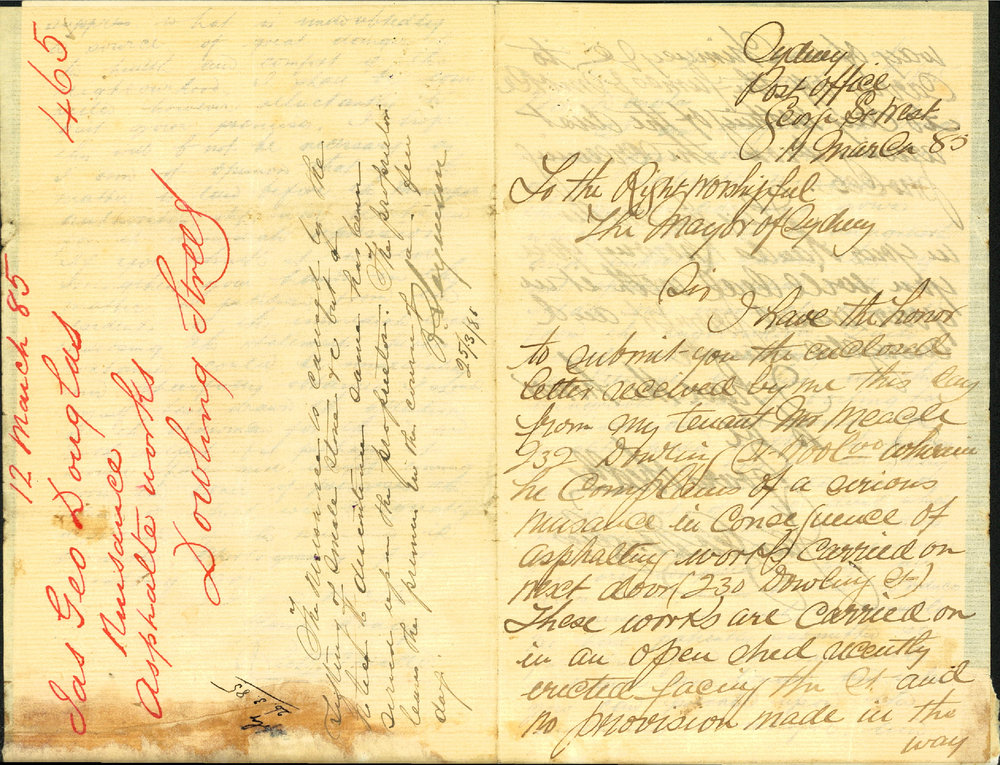 465
12 March 85
Jas Geo Douglas
Nuisance
Asphalte works
Dowling Street
The Nuisance is caused by the
sifting of smale stone &c but a
notice to discontinue same has been
served upon the proprietor. The proprietor
leaves the premises in the course of a few
days.
R Seymour
25/3/85
26/3/85
Sydney
Post office
George St West
11 March 85
To the Right worshipful
The Mayor of Sydney
Sir
I have the honor
to submit you the enclosed
letter received by me this day
from my tenant Mr Meacle
232 Dowling St Woolloo wherein
he Complains of a serious
nuisance in Consequence of
asphalting works carried on
next door (230 Dowling St)
These works are carried on
in an open shed recently
erected facing the St and
no provision made in the
way